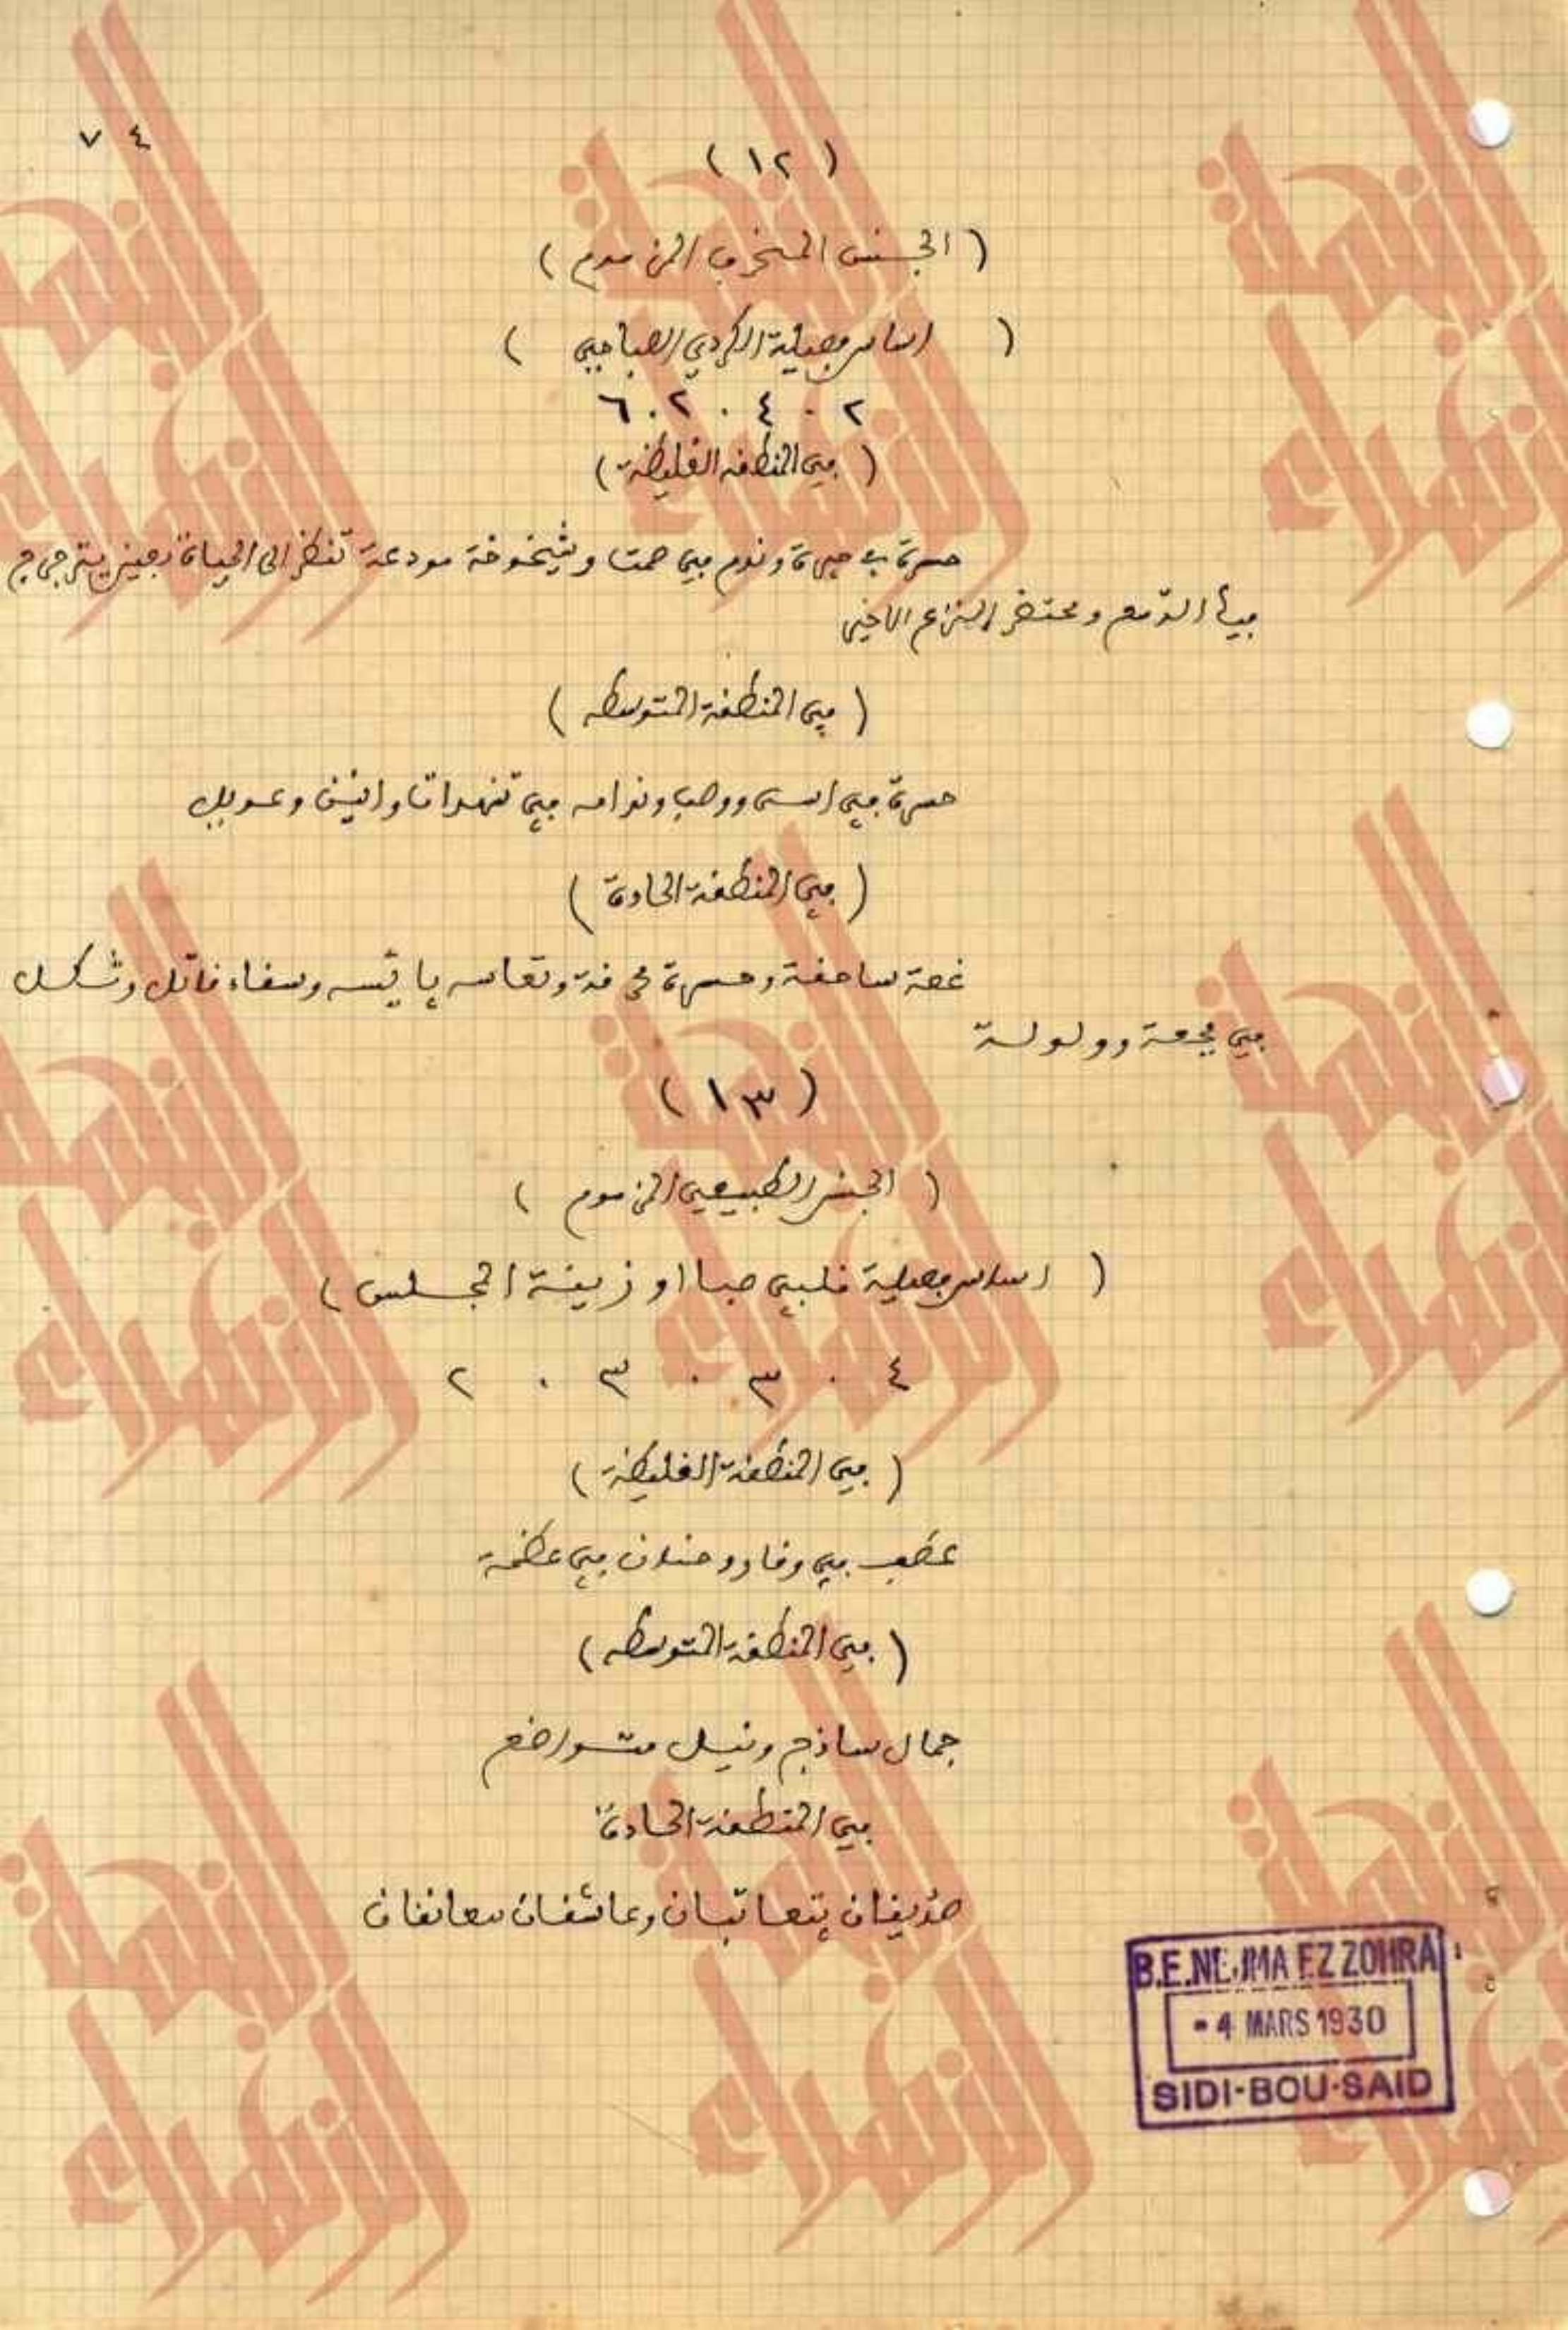 ٧٤
( ١٢ )
( الجنس المنحرف المزموم )
( اساس فصيلة الكردي الصباحي )
٢ . ٤ . ٢ . ٦
( في المنطقة الغليظة )
حسرة في حيرة وندم في صمت وشيخوخة مودعة تنظر الى الحياة بعين يترجرج
فيها الدمع ومحتضر النزاع الاخير
( في المنطقة المتوسطه )
حسرة في اسى ووصب وندامه في تنهدات وانين وعويل
( في المنطقة الحادة )
غصة ساحقة وحسرة محرقة وتعاسه يائسه وسقاء قاتل وثكل
في فجعة وولولة
( ١٣ )
( الجنس الطبيعي المزموم )
( اساس فصيلة قلبي صبا او زينة المجلس )
٤ . ٣ . ٣ . ٢
( في المنطقة الغليظة )
عطف في وقار وحنان في عظمة
( في المنطقة المتوسطه )
جمال ساذج ونبل متواضع
في المنطقة الحادة
صديقان يتعاتبان وعاشقان يتعانقان
B.E.NEJMA EZZOHRA
- 4 MARS 1930
SIDI-BOU-SAID
النجمة الزهراء